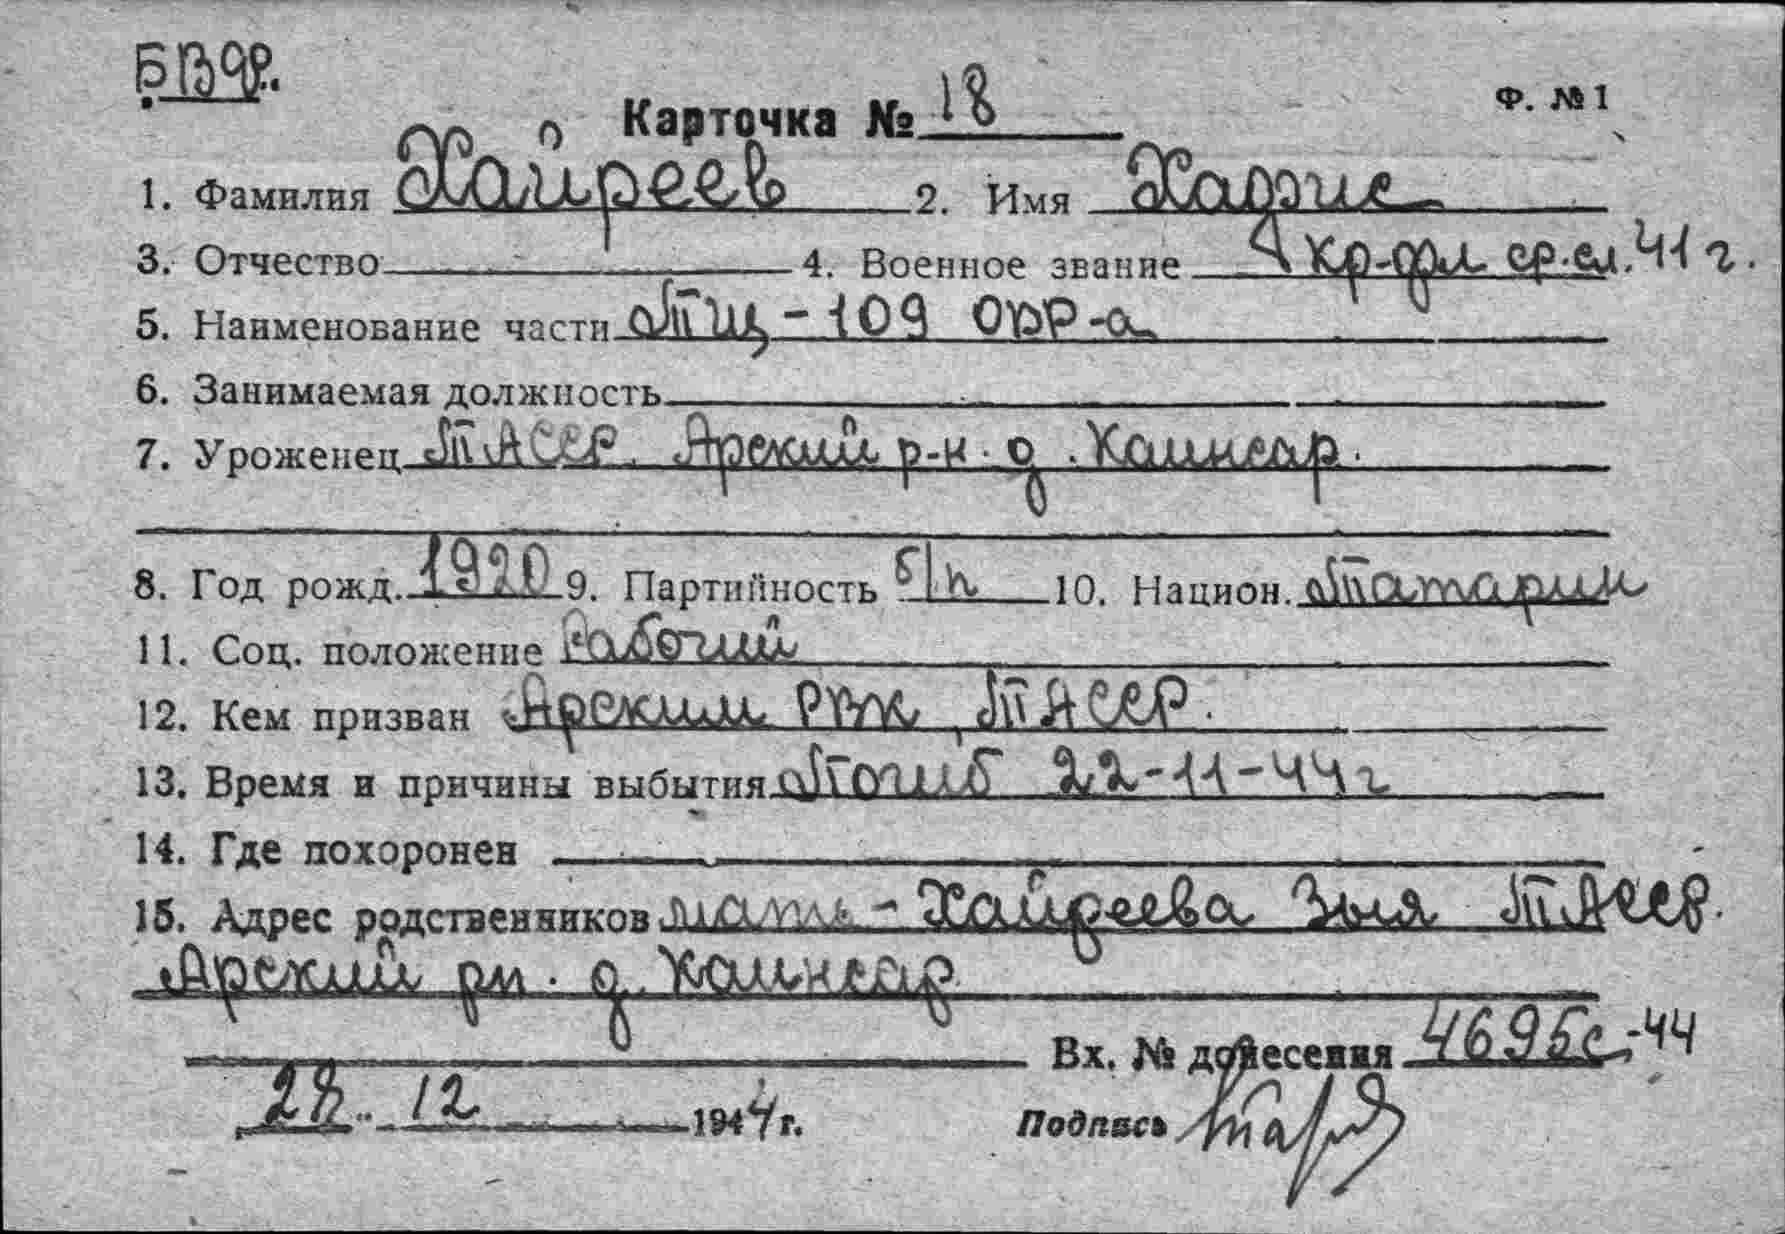 Карточка № 18
Ф. № 1
1. Фамилия Хайреев 2. Имя Хафис
3. Отчество 4. Военное звание кр-фл ср.сл. 41 г.
5. Наименование части ТЩ-109 ОВР-а
6. Занимаемая должность
7. Уроженец ТАССР. Арский р-н. д. Каинсар.
8. Год рожд. 1920 9. Партийность б/п 10. Национ. Татарин
11. Соц. положение Рабочий
12. Кем призван Арским РВК, ТАССР.
13. Время и причины выбытия Погиб 22-11-44 г
14. Где похоронен
15. Адрес родственников мать - Хайреева Зыя ТАССР.
Арский рн. д. Каинсар
Вх. № донесения 4695с,-44
28. 12 1944 г. Подпись